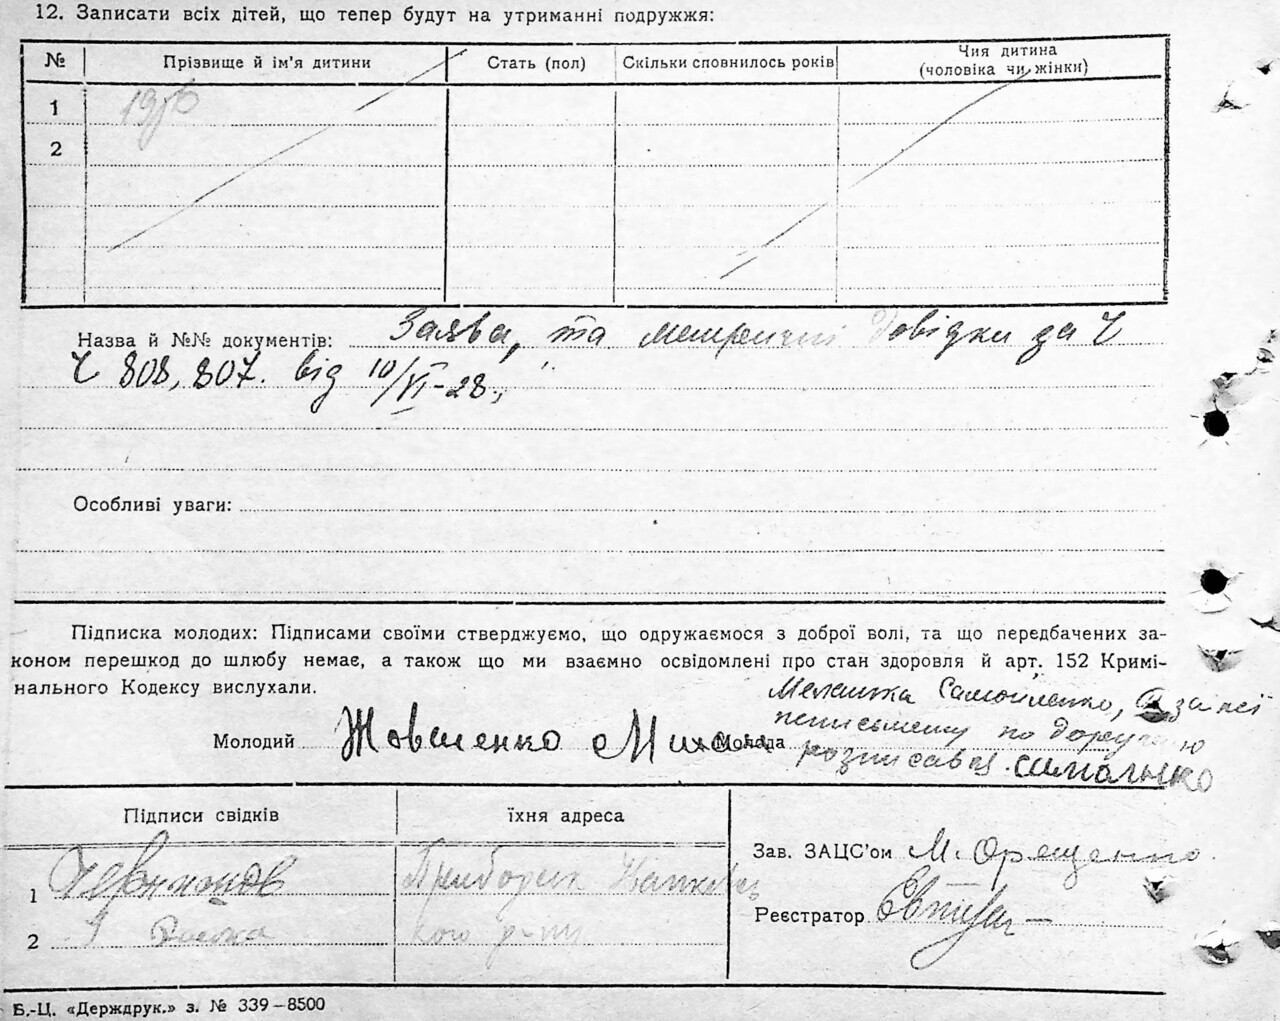 12. Записати всіх дітей, що тепер будут на утриманні подружжя:
№ Прізвище й ім'я дитини Стать (пол) Скільки сповнилось років Чия дитина
(чоловіка чи жінки)
1
2
Назва й №№ документів: Заява, та метричні довідки за Ч
Ч 808, 807. від 10/VI-28.,
Особливі уваги:
Підписка молодих: Підписами своїми стверджуємо, що одружаємося з доброї волі, та що передбачених за-
коном перешкод до шлюбу немає, а також що ми взаємно освідомлені про стан здоровля й арт. 152 Кримі-
нального Кодексу вислухали.
Мелашка Самойленко, а за неї
неписьменну по доручению
Молодий Жовшенко Михаил Молода розписався
Підписи свідків їхня адреса
Зав. ЗАЦС'ом М. Орященко
1
Реєстратор
2 кого р-ну
Б.-Ц. «Держдрук.» з. № 339–8500